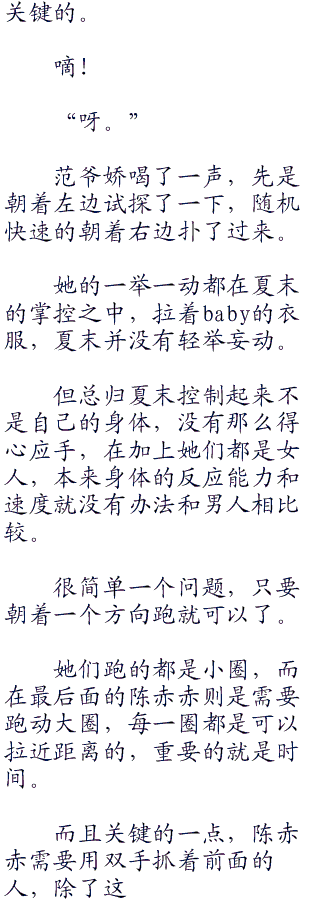 关键的。
嘀！
“呀。”
范爷娇喝了一声，先是
朝着左边试探了一下，随机
快速的朝着右边扑了过来。
她的一举一动都在夏末
的掌控之中，拉着baby的衣
服，夏末并没有轻举妄动。
但总归夏末控制起来不
是自己的身体，没有那么得
心应手，在加上她们都是女
人，本来身体的反应能力和
速度就没有办法和男人相比
较。
很简单一个问题，只要
朝着一个方向跑就可以了。
她们跑的都是小圈，而
在最后面的陈赤赤则是需要
跑动大圈，每一圈都是可以
拉近距离的，重要的就是时
间。
而且关键的一点，陈赤
赤需要用双手抓着前面的
人，除了这